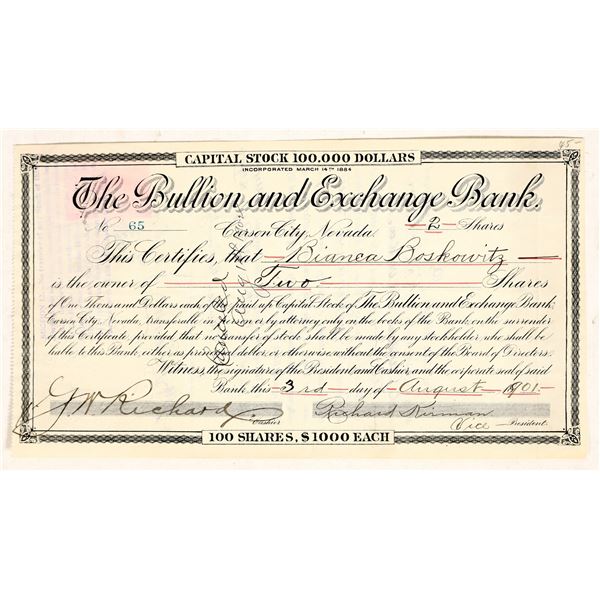 45-
CAPITAL STOCK 100.000 DOLLARS
INCORPORATED MARCH 14TH 1884
The Bullion and Exchange Bank.
No 65 Carson City, Nevada. 2 Shares
This Certifies, that Bianca Boskowitz
is the owner of Two Shares
of One Thousand Dollars each of the paid up Capital Stock of The Bullion and Exchange Bank,
Carson City, Nevada, transferable in person or by attorney only on the books of the Bank, on the surrender
of this Certificate provided that no transfer of stock shall be made by any stockholder who shall be
liable to this Bank, either as principal debtor, or otherwise, without the consent of the Board of Directors.
Witness, the signature of the President and Cashier, and the corporate seal of said
Bank this 3rd day of August 1901.
G W Richard Cashier
Richard Kirman Vice President.
100 SHARES, $1000 EACH
Cancelled
Aug